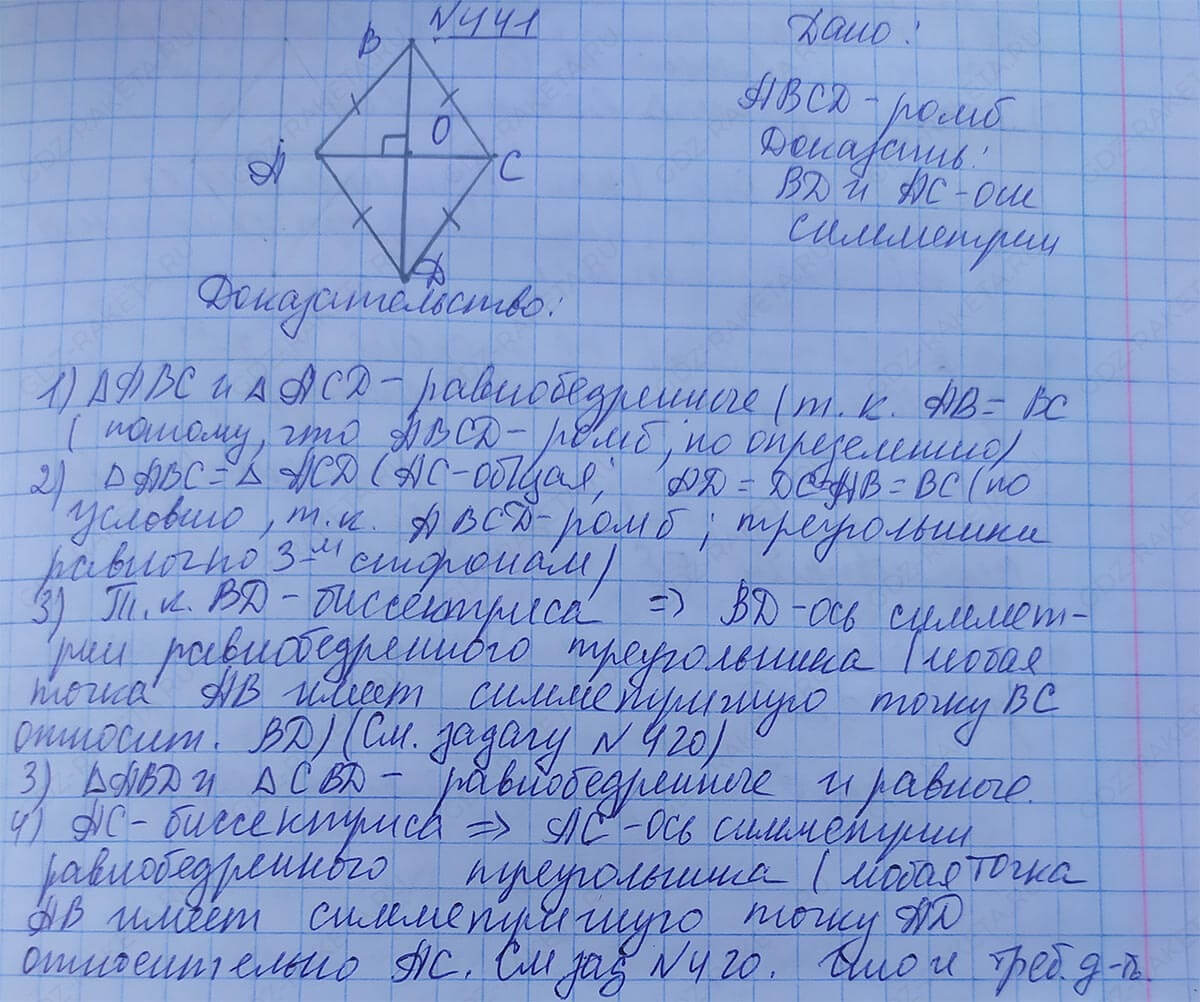 N441
B
O
A
C
D
Дано:
ABCD - ромб
Доказать:
BD и AC - оси
симметрии
Доказательство:
1) △ABC и △ACD - равнобедренные (т.к. AB = BC
(потому, что ABCD - ромб, по определению)
2) △ABC = △ACD (AC - общая; AD = DC = AB = BC (по
условию, т.к. ABCD - ромб; треугольника
равны по 3-м сторонам)
3) Т.к. BD - биссектриса => BD - ось симмет-
рии равнобедренного треугольника (любая
точка AB имеет симметричную точку BC
относит. BD) (См. задачу N420)
3) △ABD и △CBD - равнобедренные и равные.
4) AC - биссектриса => AC - ось симметрии
равнобедренного треугольника (любая точка
AB имеет симметричную точку AD
относительно AC. См зад N420. Что и треб. д-ть.